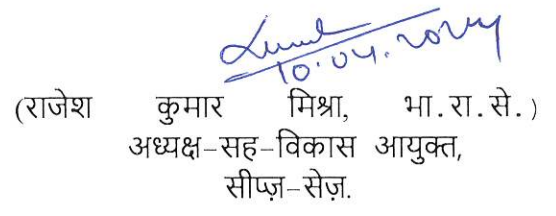 10.04.2024
(राजेश कुमार मिश्रा, भा.रा.से.)
अध्यक्ष-सह-विकास आयुक्त,
सीप्ज़-सेज़.